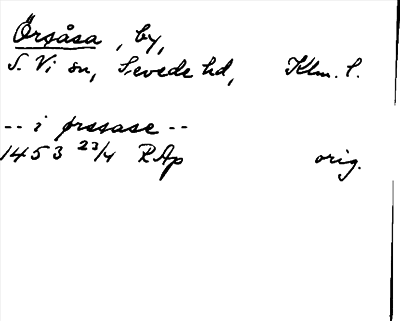 Örsåsa, by,
S. Vi sn, Sevede hd, Klm. l.
-- i ørssase --
1453 23/4 RAp orig.